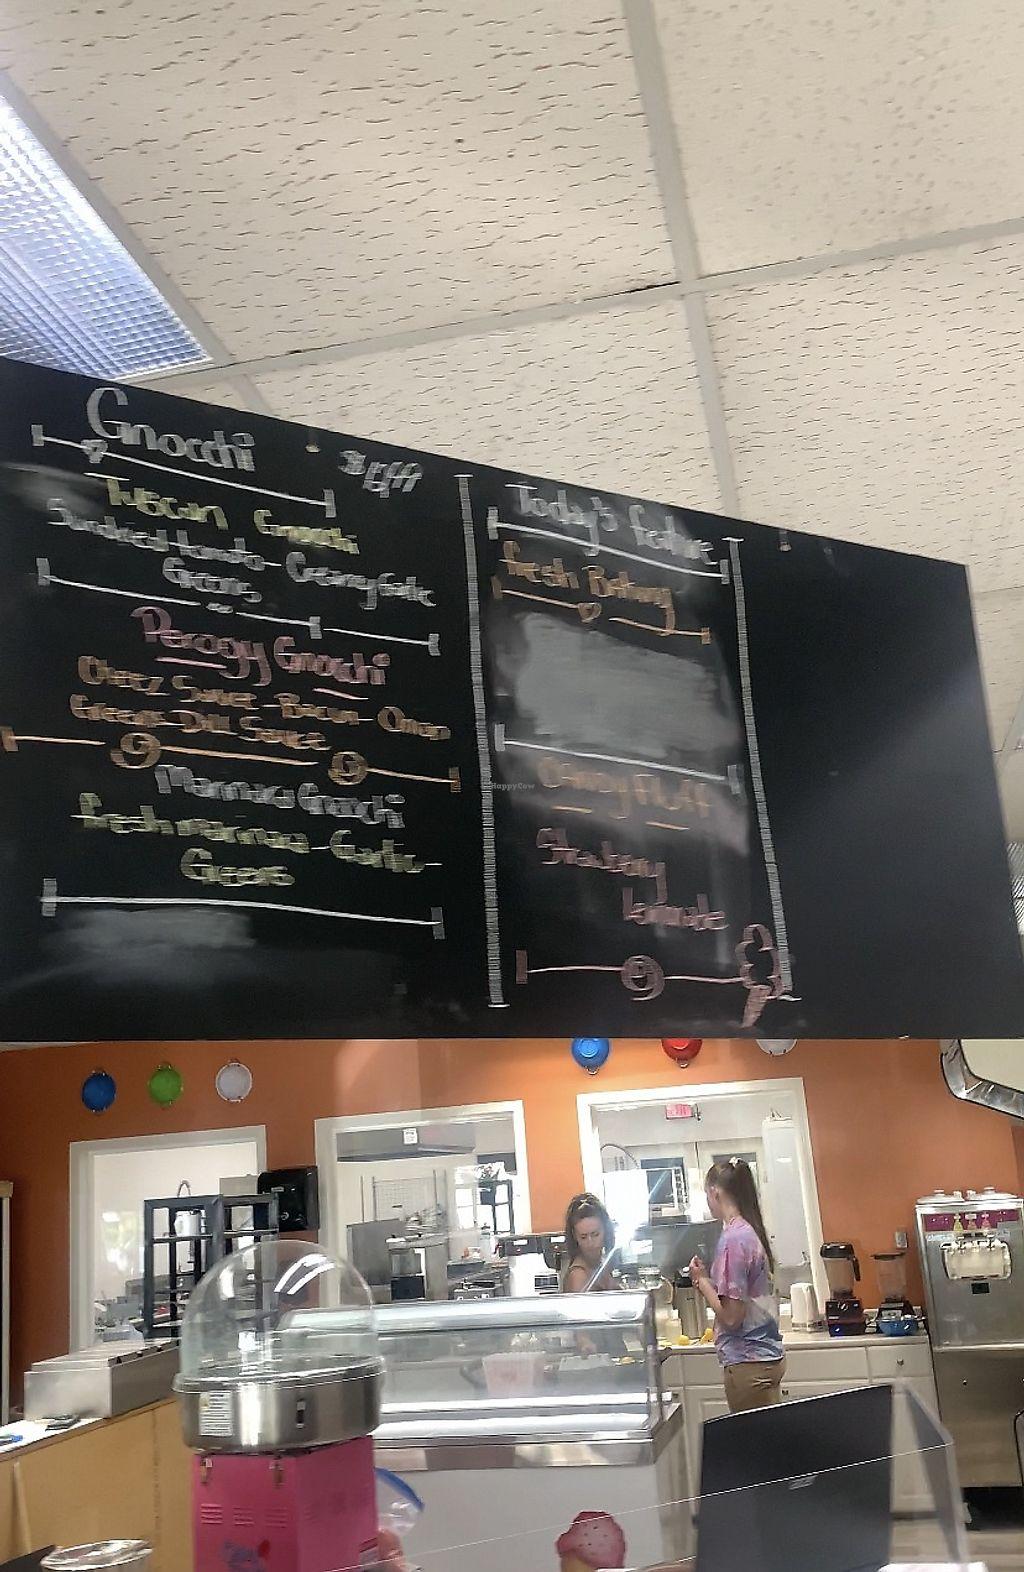 Gnocchi
Tuscan Gnocchi
Sundried tomato - Creamy Garlic
Greens
Perogy Gnocchi
Cheez Sauce - Bacun - Onion
Greens - Dill Sauce
Marinara Gnocchi
fresh marinara - Garlic -
Greens
Today's feature
fresh Baking
Candy Fluff
Strawberry
lemonade
HappyCow